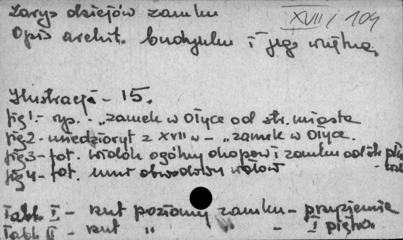 Zarys dziejów zamku
XVIII/109
Opis archit. budynku i jego wnętrza
Ilustracji - 15.
fig 1. - ryc. - "zamek w Ołyce od str. miasta
fig 2 - miedzioryt z XVII w - "zamek w Ołyce.
fig 3 - fot. widok ogólny okopów i zamku od
fig 4 - fot. mur obwodowy
Tabl. I - rzut poziomy zamku - przyziemie
Tabl. II - rzut " - I piętro.